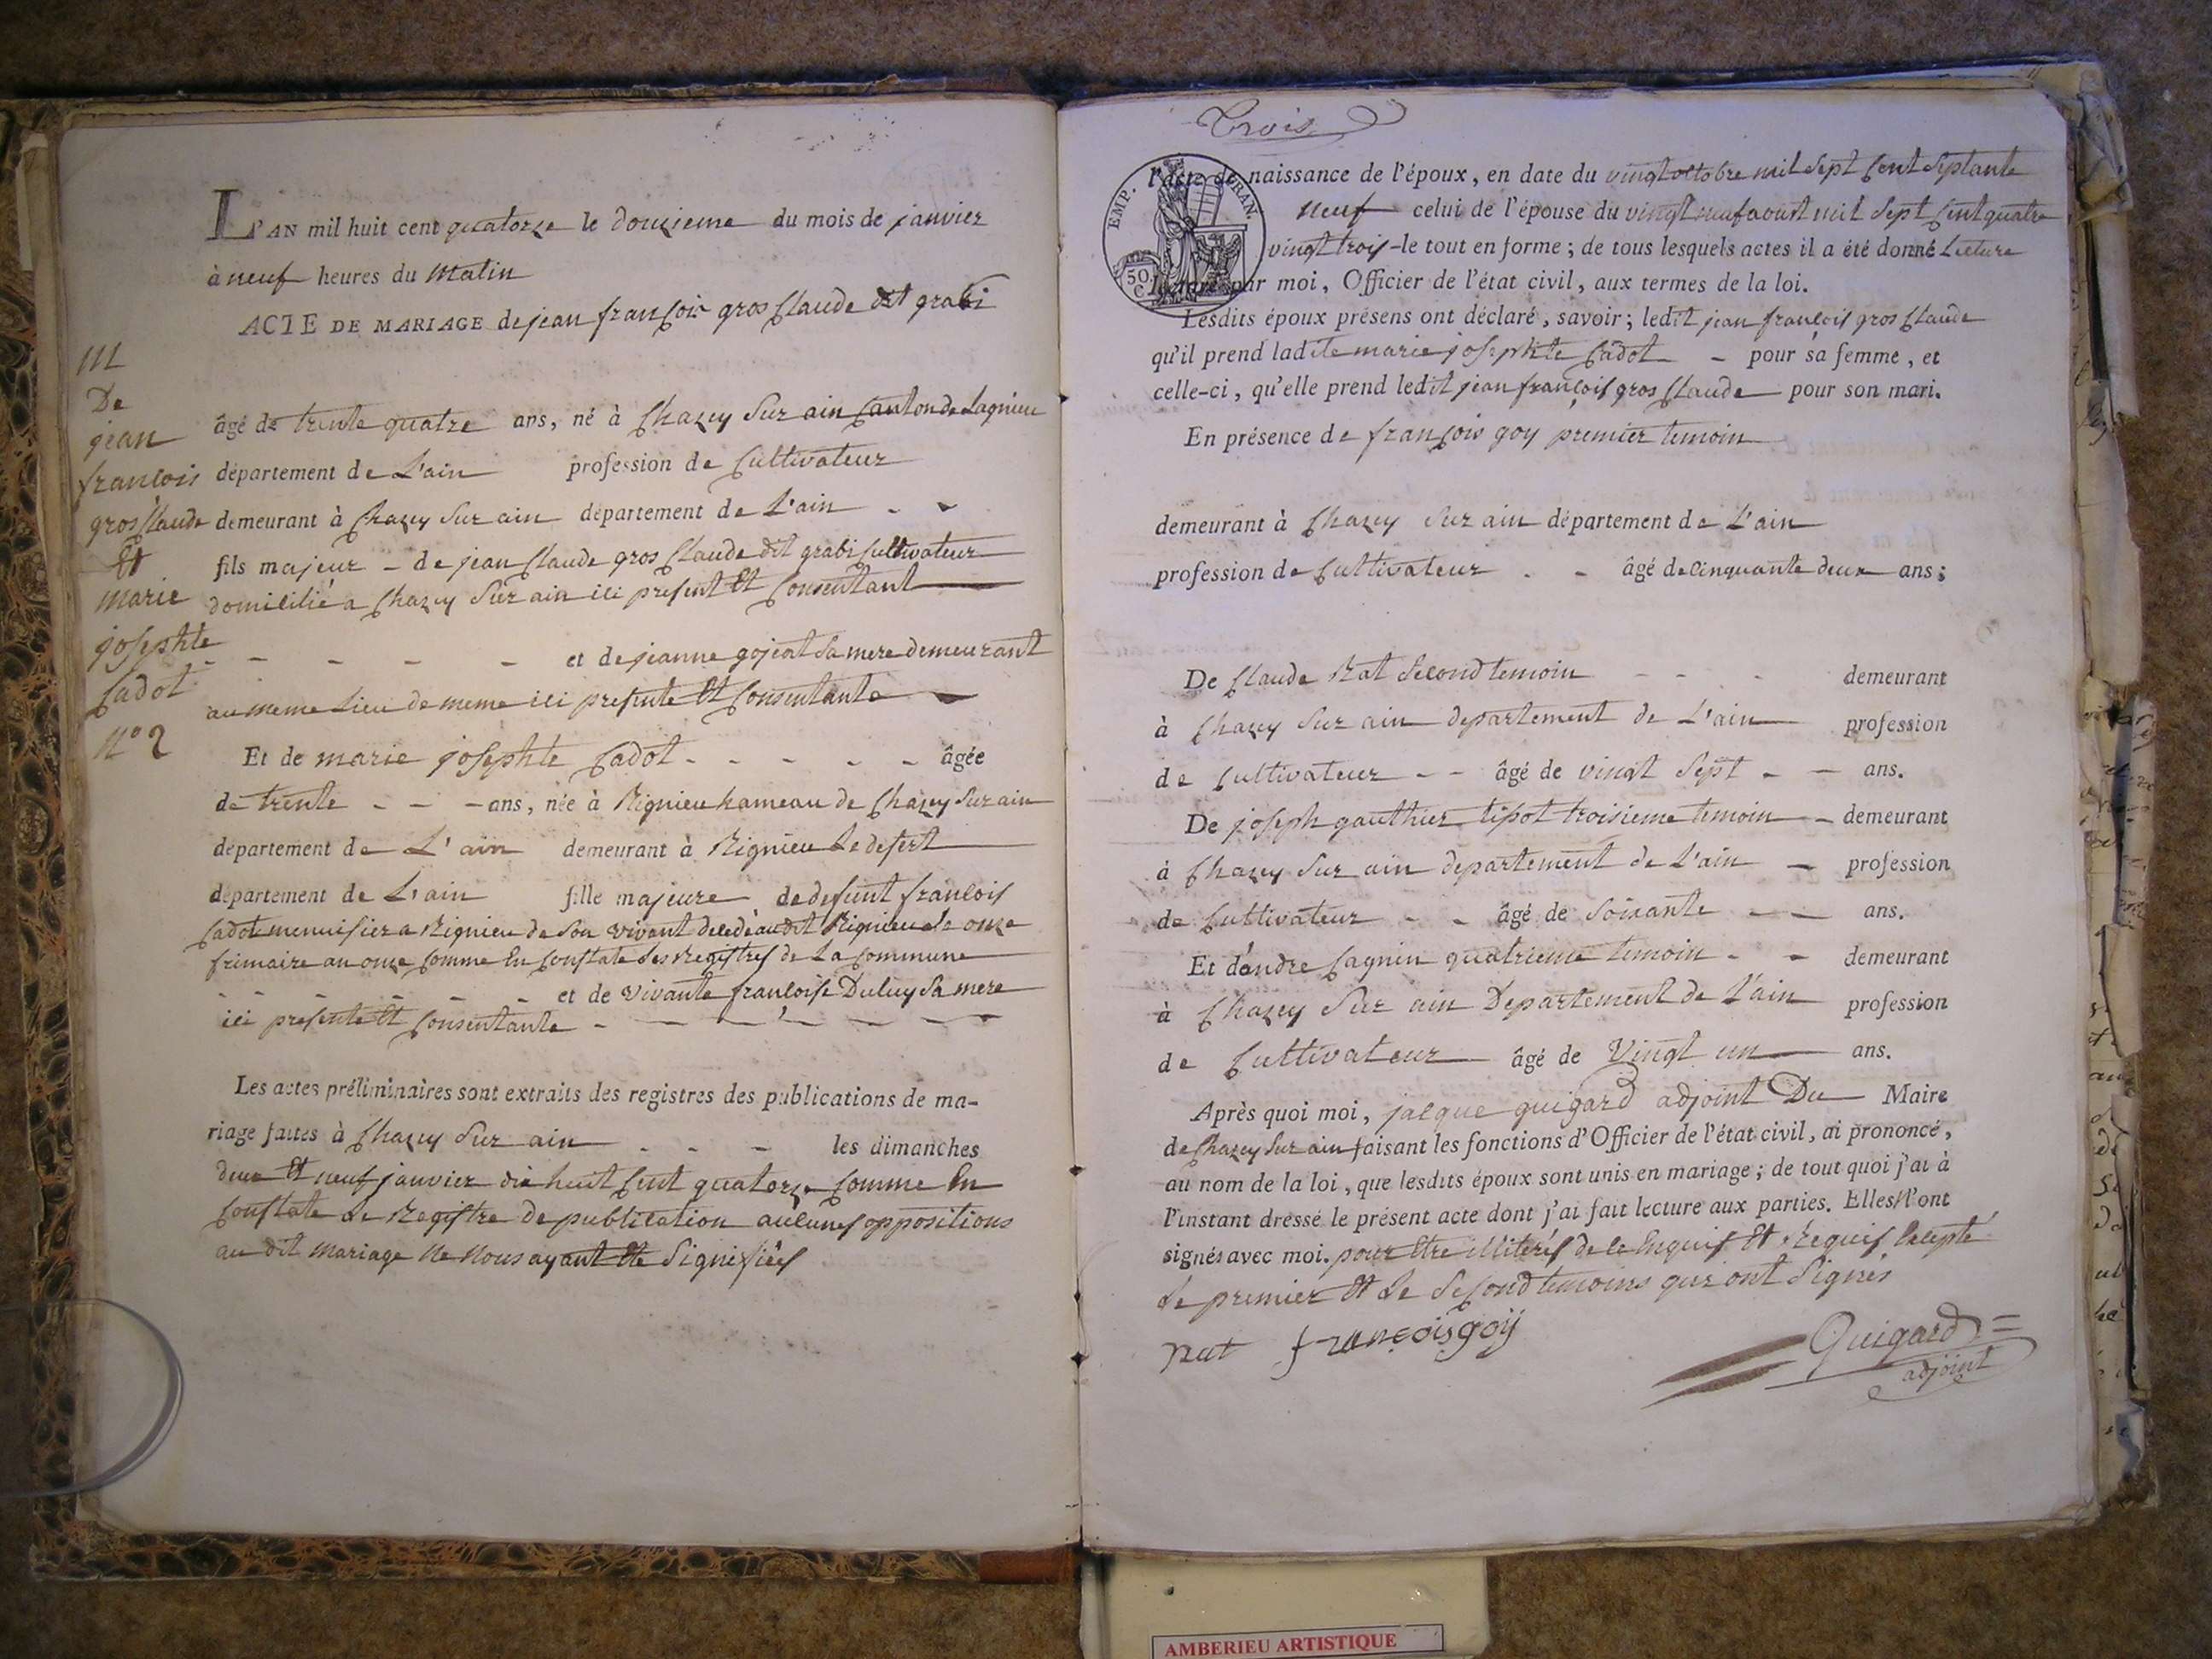 L'AN mil huit cent quatorze le douzieme du mois de janvier
à neuf heures du matin
ACTE DE MARIAGE de jean françois gros Claude dit grabi
M
De
jean
francois
gros Claude
Et
marie
josephte
Cadot
N° 2
âgé de trente quatre ans, né à Chazey Sur ain Canton de Lagnieu
département de L'ain profession de Cultivateur
demeurant à Chazey Sur ain département de L'ain - -
fils majeur - de jean Claude gros Claude dit grabi Cultivateur
domicilié a Chazey Sur ain ici present Et Consentant
- - - - - et de jeanne gojeat Sa mere demeurant
au meme Lieu de meme ici presente Et Consentante
Et de marie josephte Cadot - - - - - âgée
de trente - - - ans, née à Rignieu hameau de Chazey Sur ain
département de L'ain demeurant à Rignieu Le desert
département de L'ain fille majeure de defunt francois
Cadot menuisier a Rignieu de Son vivant decedé audit Rignieu le onze
frimaire an onze Comme En Constate Les Registres de La Commune
- - - - - - et de vivante francoise Duluy Sa mere
ici presente Et Consentante - - - - - - -
Les actes préliminaires sont extraits des registres des publications de ma-
riage faites à Chazey Sur ain - - - les dimanches
deux Et neuf janvier dix huit Cent quatorze Comme En
Constate Le Registre de publication aucunes oppositions
au dit mariage Ne Nous ayant Ete Signifiées
Trois
EMP. FRAN.
50
C.
l'acte de naissance de l'époux, en date du vingt octobre mil Sept Cent Septante
neuf celui de l'épouse du vingt neuf aoust mil Sept Cent quatre
vingt trois - le tout en forme ; de tous lesquels actes il a été donné Lecture
lecture par moi, Officier de l'état civil, aux termes de la loi.
Lesdits époux présens ont déclaré, savoir ; ledit jean francois gros Claude
qu'il prend ladite marie josephte Cadot - pour sa femme, et
celle-ci, qu'elle prend ledit jean françois gros Claude pour son mari.
En présence de françois goy premier temoin
demeurant à Chazey Sur ain département de L'ain
profession de Cultivateur - - âgé de Cinquante deux ans ;
De Claude Rat Second temoin - - - demeurant
à Chazey Sur ain departement de L'ain profession
de Cultivateur - - âgé de vingt Sept - - ans.
De joseph gauthier tipot troisieme temoin - demeurant
à Chazey Sur ain departement de L'ain - profession
de Cultivateur - - âgé de Soixante - - ans.
Et d'andre Cagnin quatrieme temoin - - demeurant
à Chazey Sur ain Departement de L'ain profession
de Cultivateur âgé de Vingt un ans.
Après quoi moi, jacque guigard adjoint Du Maire
de Chazey Sur ain faisant les fonctions d'Officier de l'état civil, ai prononcé,
au nom de la loi, que lesdits époux sont unis en mariage ; de tout quoi j'ai à
l'instant dressé le présent acte dont j'ai fait lecture aux parties. Elles N'ont
signés avec moi. pour Etre illiterés de ce Enquis Et Réquis Excepté
Le premier Et Le Second temoins qui ont Signés
Rat françois goÿ
Guigard =
adjoint
AMBERIEU ARTISTIQUE